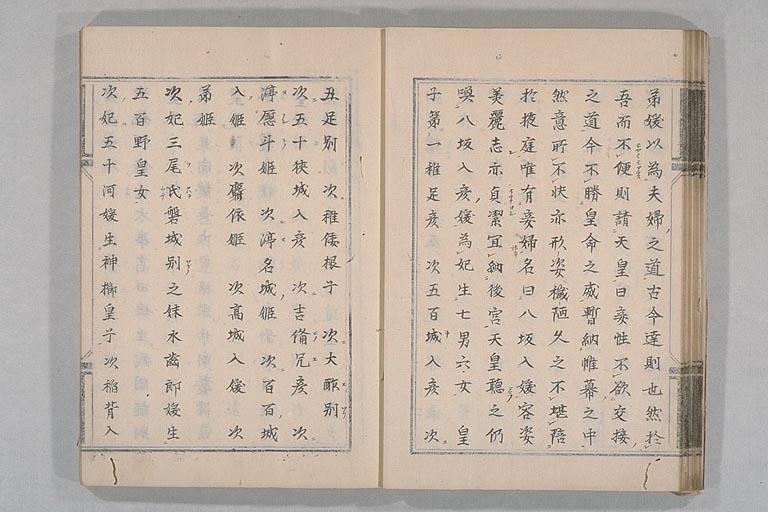 弟媛以為夫婦之道古今達則也然於
吾而不便則請天皇曰妾性不欲交接
之道今不勝皇命之威暫納帷幕之中
然意所不快亦形姿穢陋久之不堪陪
於掖庭唯有妾婦名曰八坂入媛容姿
美麗志亦貞潔宜納後宮天皇聽之仍
喚八坂入彦媛為妃生七男六女皇
子第一稚足彦次五百城入彦次
丑足別次稚倭根子次大酢別
次五十狹城入彦次吉備兄彦次
渟愿斗姫次渟名城姫次百百城
入姫次齋依姫次高城入媛次
弟姫
次妃三尾氏磐城別之妹水齒郎媛生
五百野皇女
次妃五十河媛生神櫛皇子次稲背入